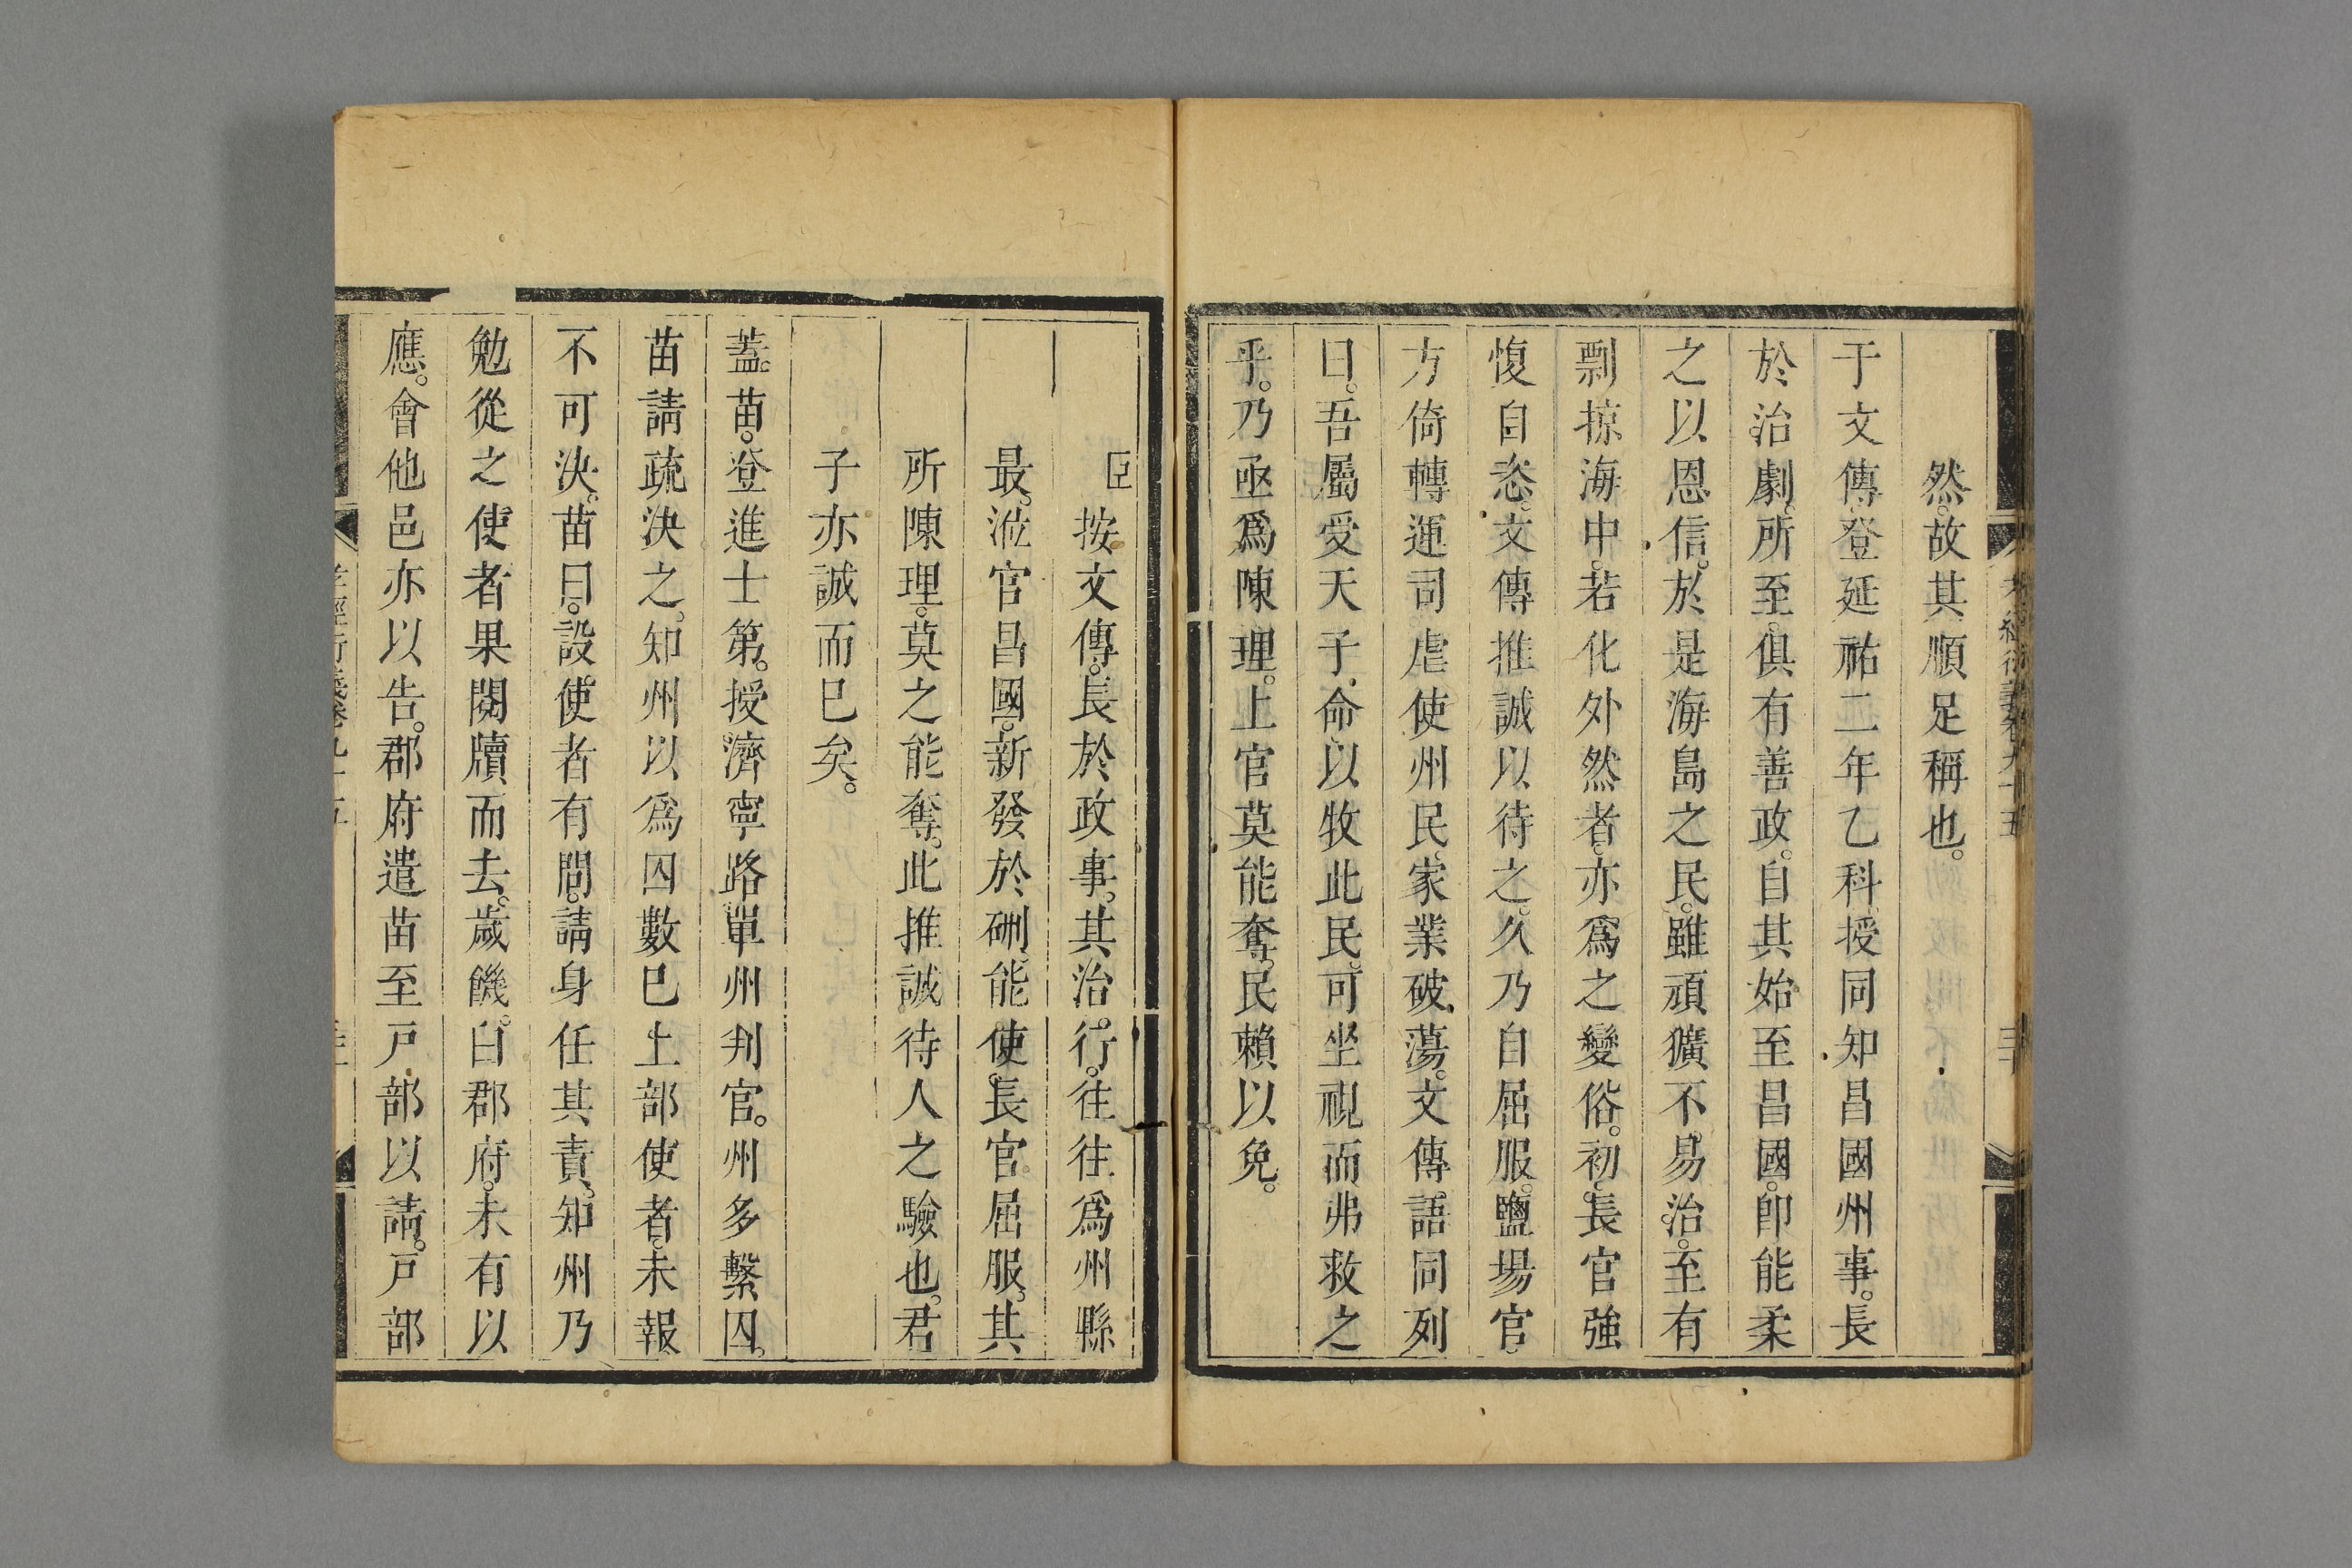 然。故其順足稱也。
于文傳登延祐二年乙科授同知昌國州事。長
於治劇。所至。俱有善政。自其始至昌國。卽能柔
之以恩信。於是海島之民。雖頑獷不易治。至有
剽掠海中。若化外然者。亦為之變俗。初。長官強
愎自恣。文傳推誠以待之。久乃自屈服。鹽場官。
方倚轉運司虐使州民。家業破蕩。文傳語同列
曰。吾屬受天子命以牧此民。可坐視而弗救之
乎。乃亟爲陳理。上官莫能奪。民賴以免。
臣按文傳。長於政事。其治行。往往爲州縣
最。涖官昌國。新發於硎。能使長官屈服。其
所陳理。莫之能奪。此推誠待人之驗也。君
子亦誠而巳矣。
蓋苗。登進士第。授濟寧路單州判官。州多繫囚。
苗請疏決之。知州以爲囚數巳上部使者。未報
不可決。苗曰。設使者有問。請身任其責。知州乃
勉從之使者果閱牘而去。歲饑。白郡府。未有以
應。會他邑亦以告。郡府遣苗至戸部以請。戸部